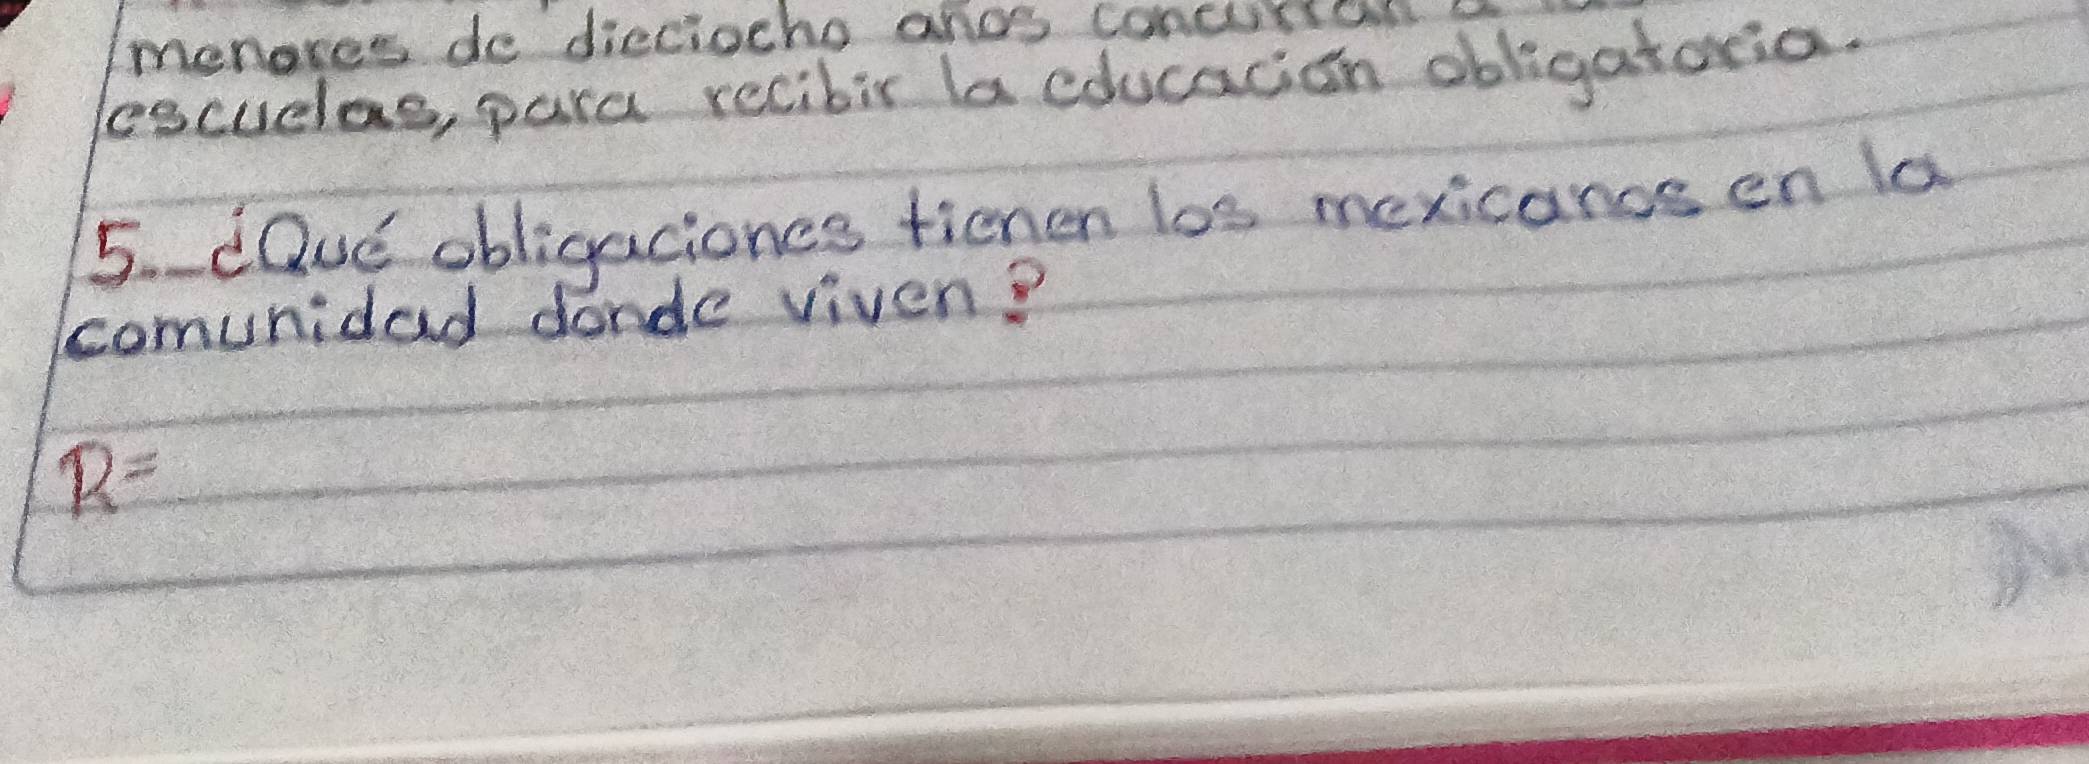 menores de dieciocho años concurran a
escuelas, para recibir la educación obligatoria.
5.- ¿Qué obligaciones tienen los mexicanos en la
comunidad dónde viven?
R=